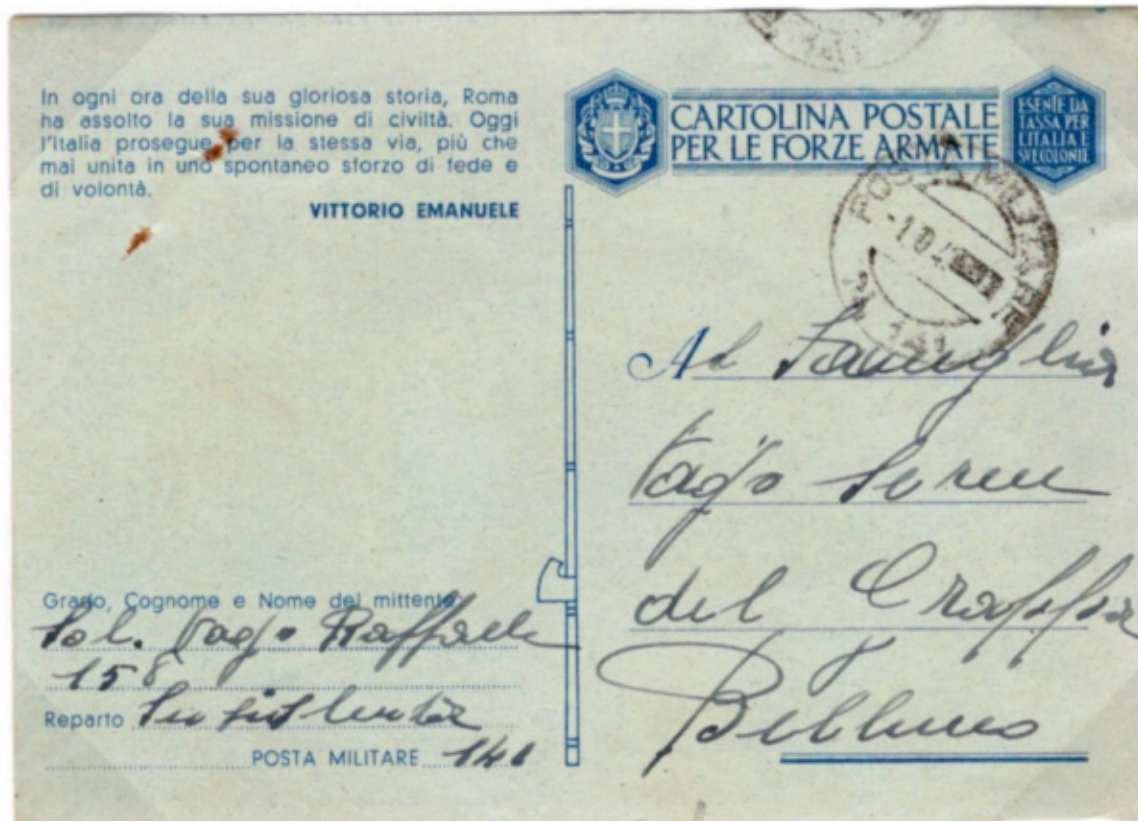 In ogni ora della sua gloriosa storia, Roma
ha assolto la sua missione di civiltà. Oggi
l'Italia prosegue per la stessa via, più che
mai unita in uno spontaneo sforzo di fede e
di volontà.
VITTORIO EMANUELE
CARTOLINA POSTALE
PER LE FORZE ARMATE
ESENTE DA
TASSA PER
L'ITALIA E
SVE COLONIE
POSTA MILITARE
Al Famiglia
del
Belluno
Grado, Cognome e Nome del mittente
Sol. Raffaele
158
Reparto Sussistenza
POSTA MILITARE 141